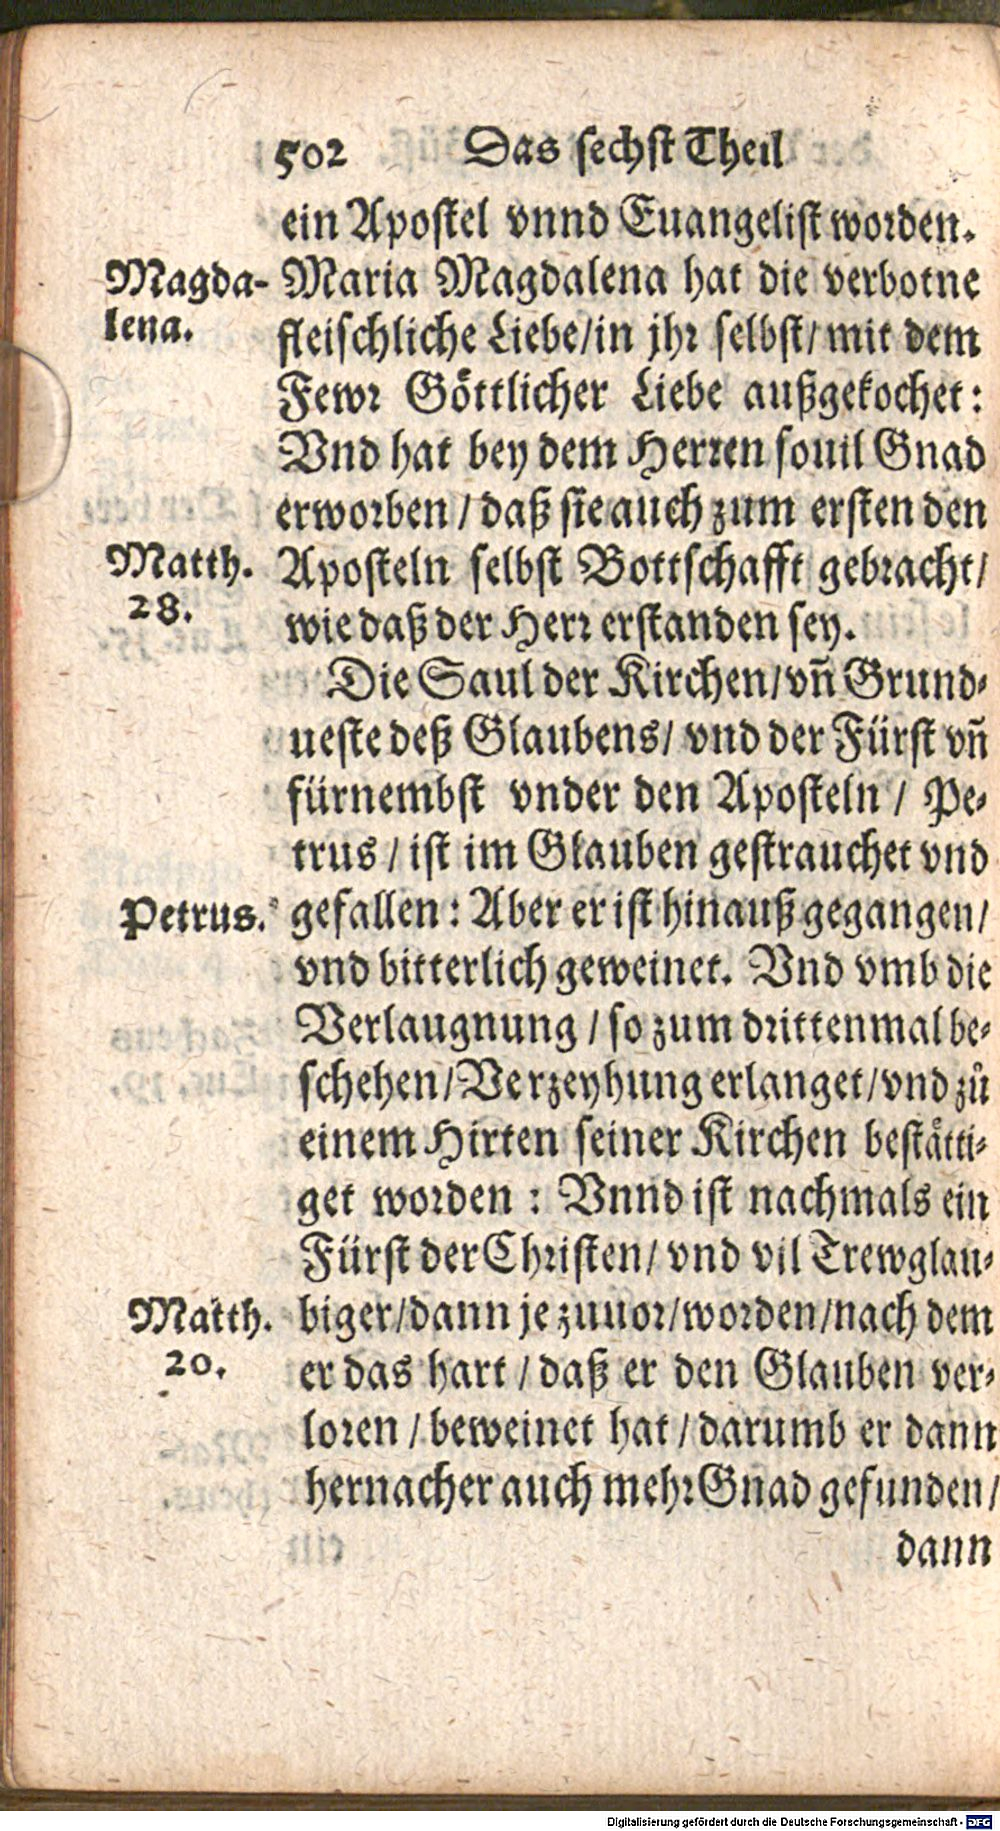 502 Das sechst Theil
ein Apostel vnnd Euangelist worden.
Magda-
lena.
Maria Magdalena hat die verbotne
fleischliche Liebe/in jhr selbst/ mit dem
Fewr Göttlicher Liebe außgekochet:
Vnd hat bey dem Herren souil Gnad
erworben / daß sie auch zum ersten den
Matth.
28.
Aposteln selbst Bottschafft gebracht/
wie daß der Herr erstanden sey.
Die Saul der Kirchen/vñ Grund-
ueste deß Glaubens/ vnd der Fürst vñ
fürnembst vnder den Aposteln / Pe-
trus / ist im Glauben gestrauchet vnd
Petrus.
gefallen: Aber er ist hinauß gegangen/
vnd bitterlich geweinet. Vnd vmb die
Verlaugnung / so zum drittenmal be-
schehen/Verzeyhung erlanget/vnd zů
einem Hirten seiner Kirchen bestätti-
get worden : Vnnd ist nachmals ein
Fürst der Christen/ vnd vil Trewglau-
Matth.
20.
biger/dann je zuuor/worden/nach dem
er das hart / daß er den Glauben ver-
loren / beweinet hat / darumb er dann
hernacher auch mehr Gnad gefunden/
dann
Digitalisierung gefördert durch die Deutsche Forschungsgemeinschaft - DFG